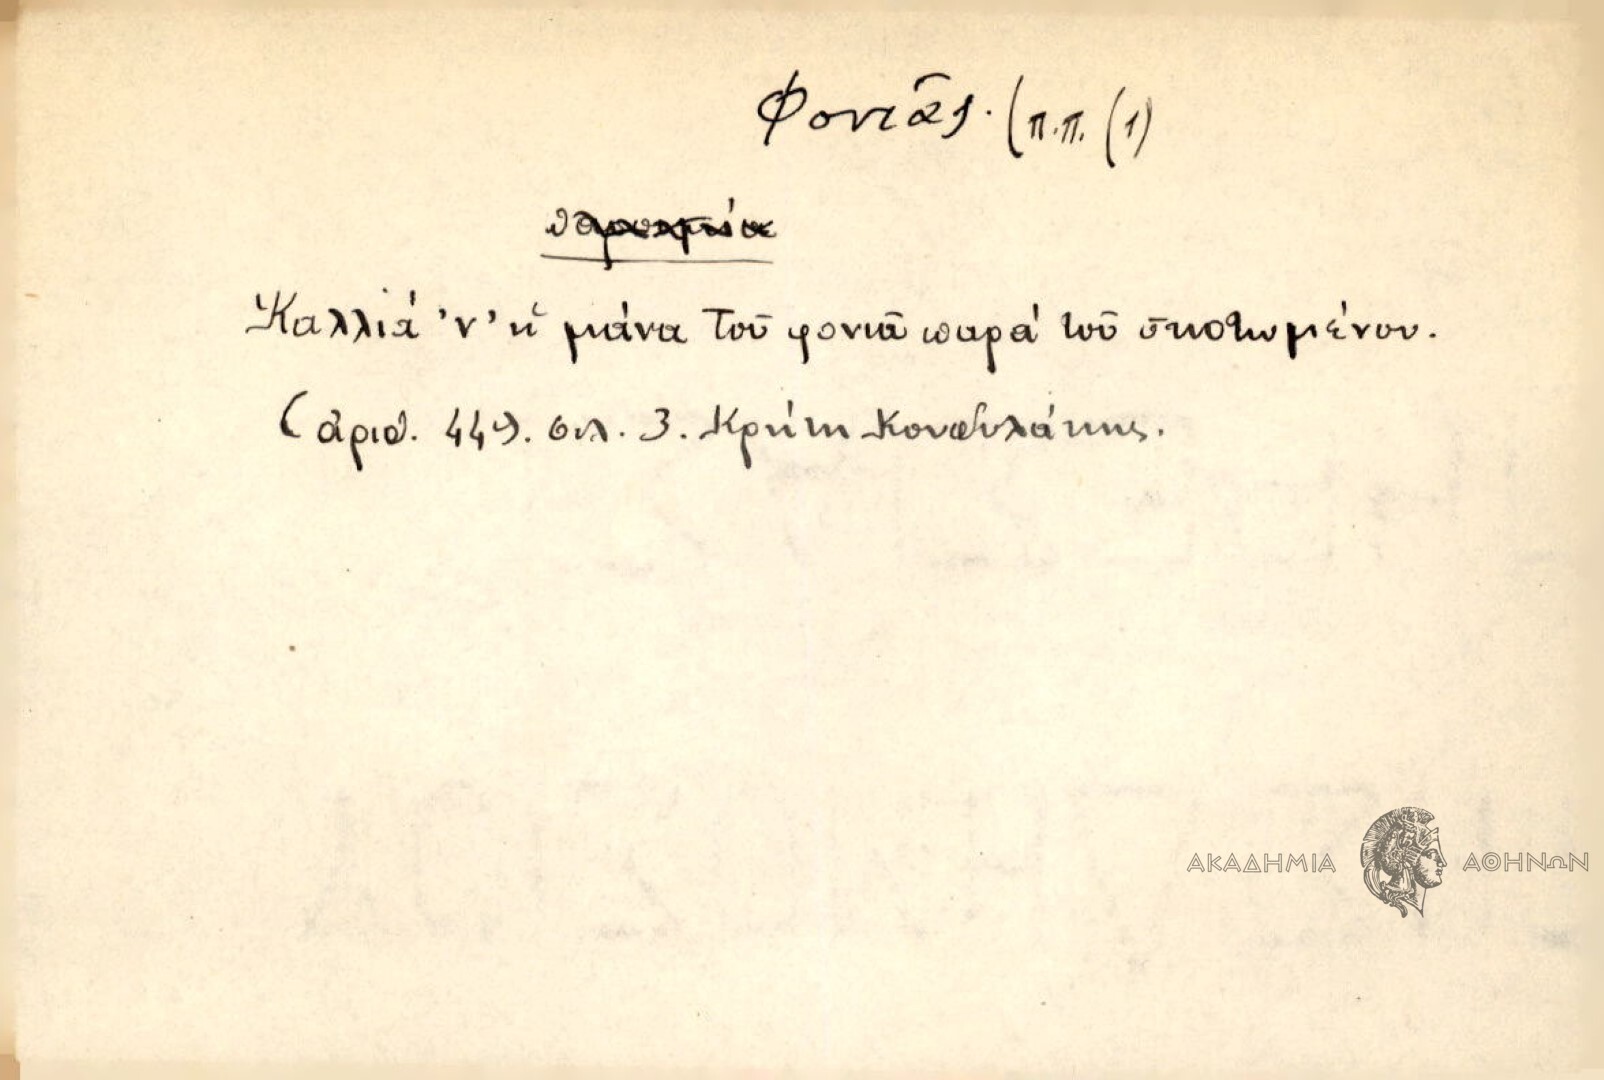 Φονιᾶς. (π.π. (1)
παροιμία
Καλλιά 'ν' ἡ μάνα τοῦ φονιᾶ παρά τοῦ σκοτωμένου.
(ἀριθ. 449. σελ. 3. Κρήτη Κονδυλάκης.
ΑΚΑΔΗΜΙΑ ΑΘΗΝΩΝ